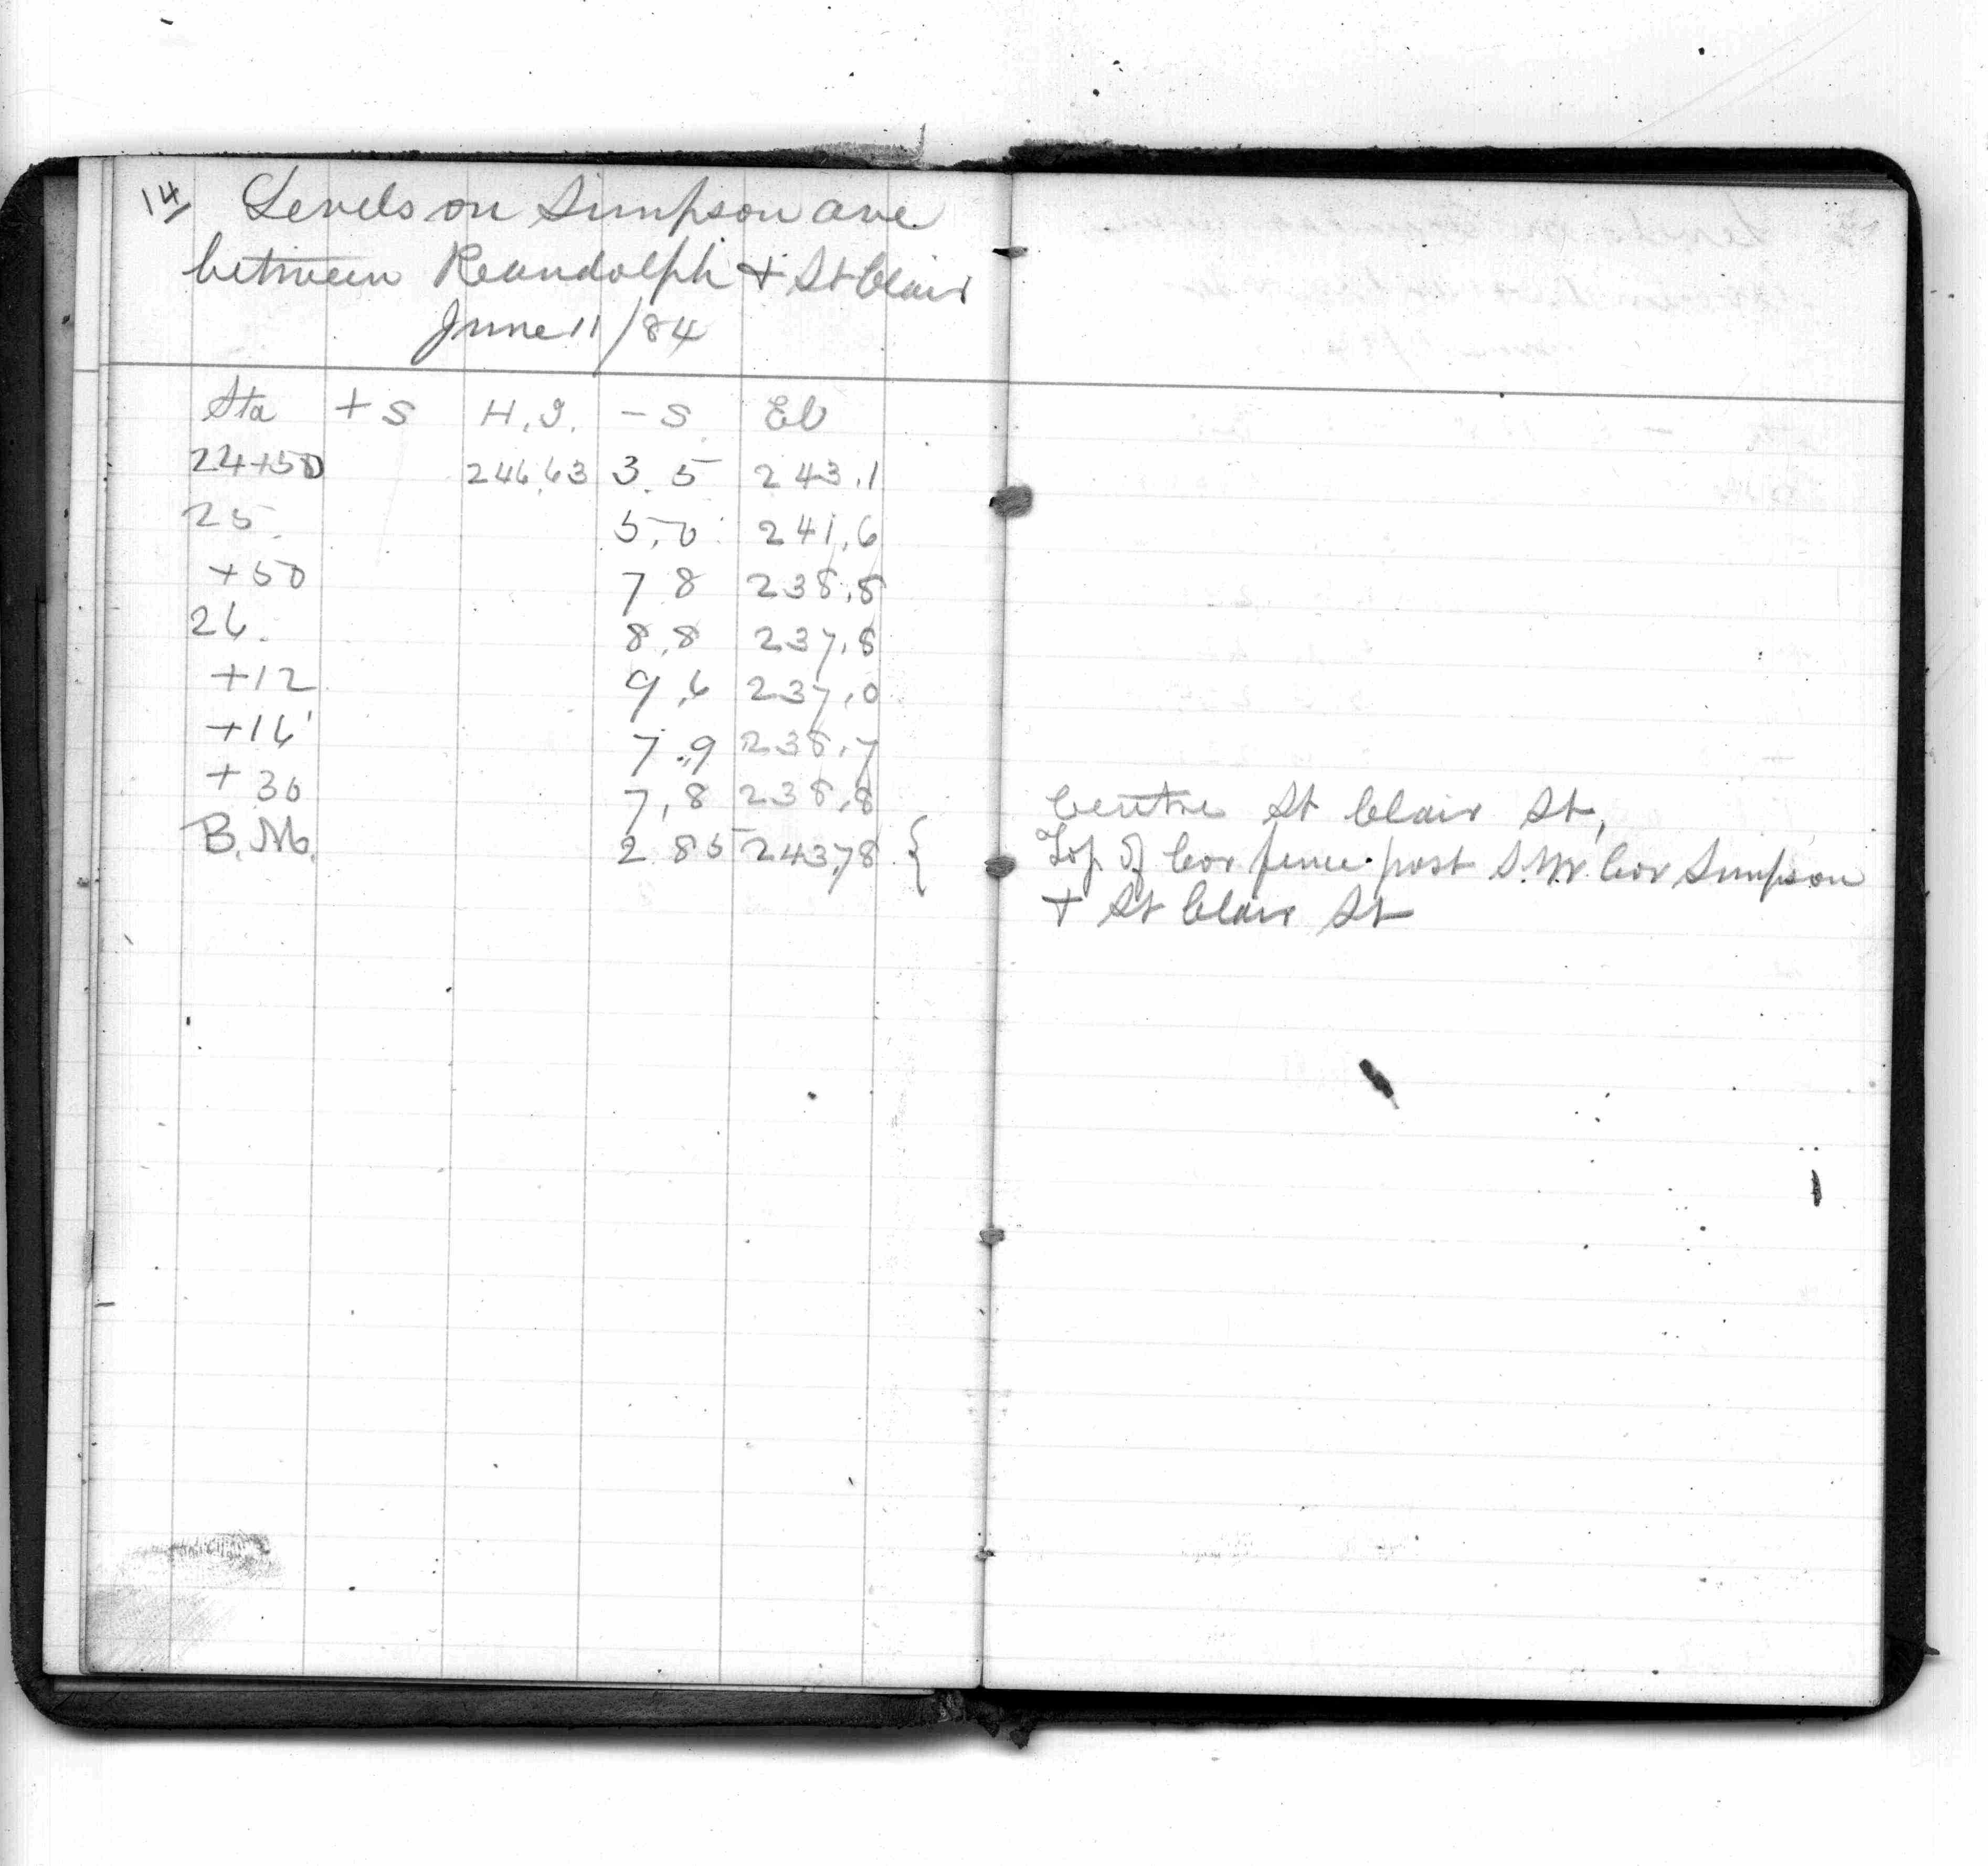 14
Levels on Simpson ave
between Randolph + St Clair
June 11/84
Sta + S H.I. - S. El
24+50 246.63 3.5 243.1
25 5.0 241.6
+50 7.8 238.8
26. 8.8 237.8
+12 9.6 237.0
+16 7.9 238.7
+36 7.8 238.8 Centre St Clair St,
B.M. 2.85 243.78 { Top of Cor fence post S.W. Cor Simpson
+ St Clair St